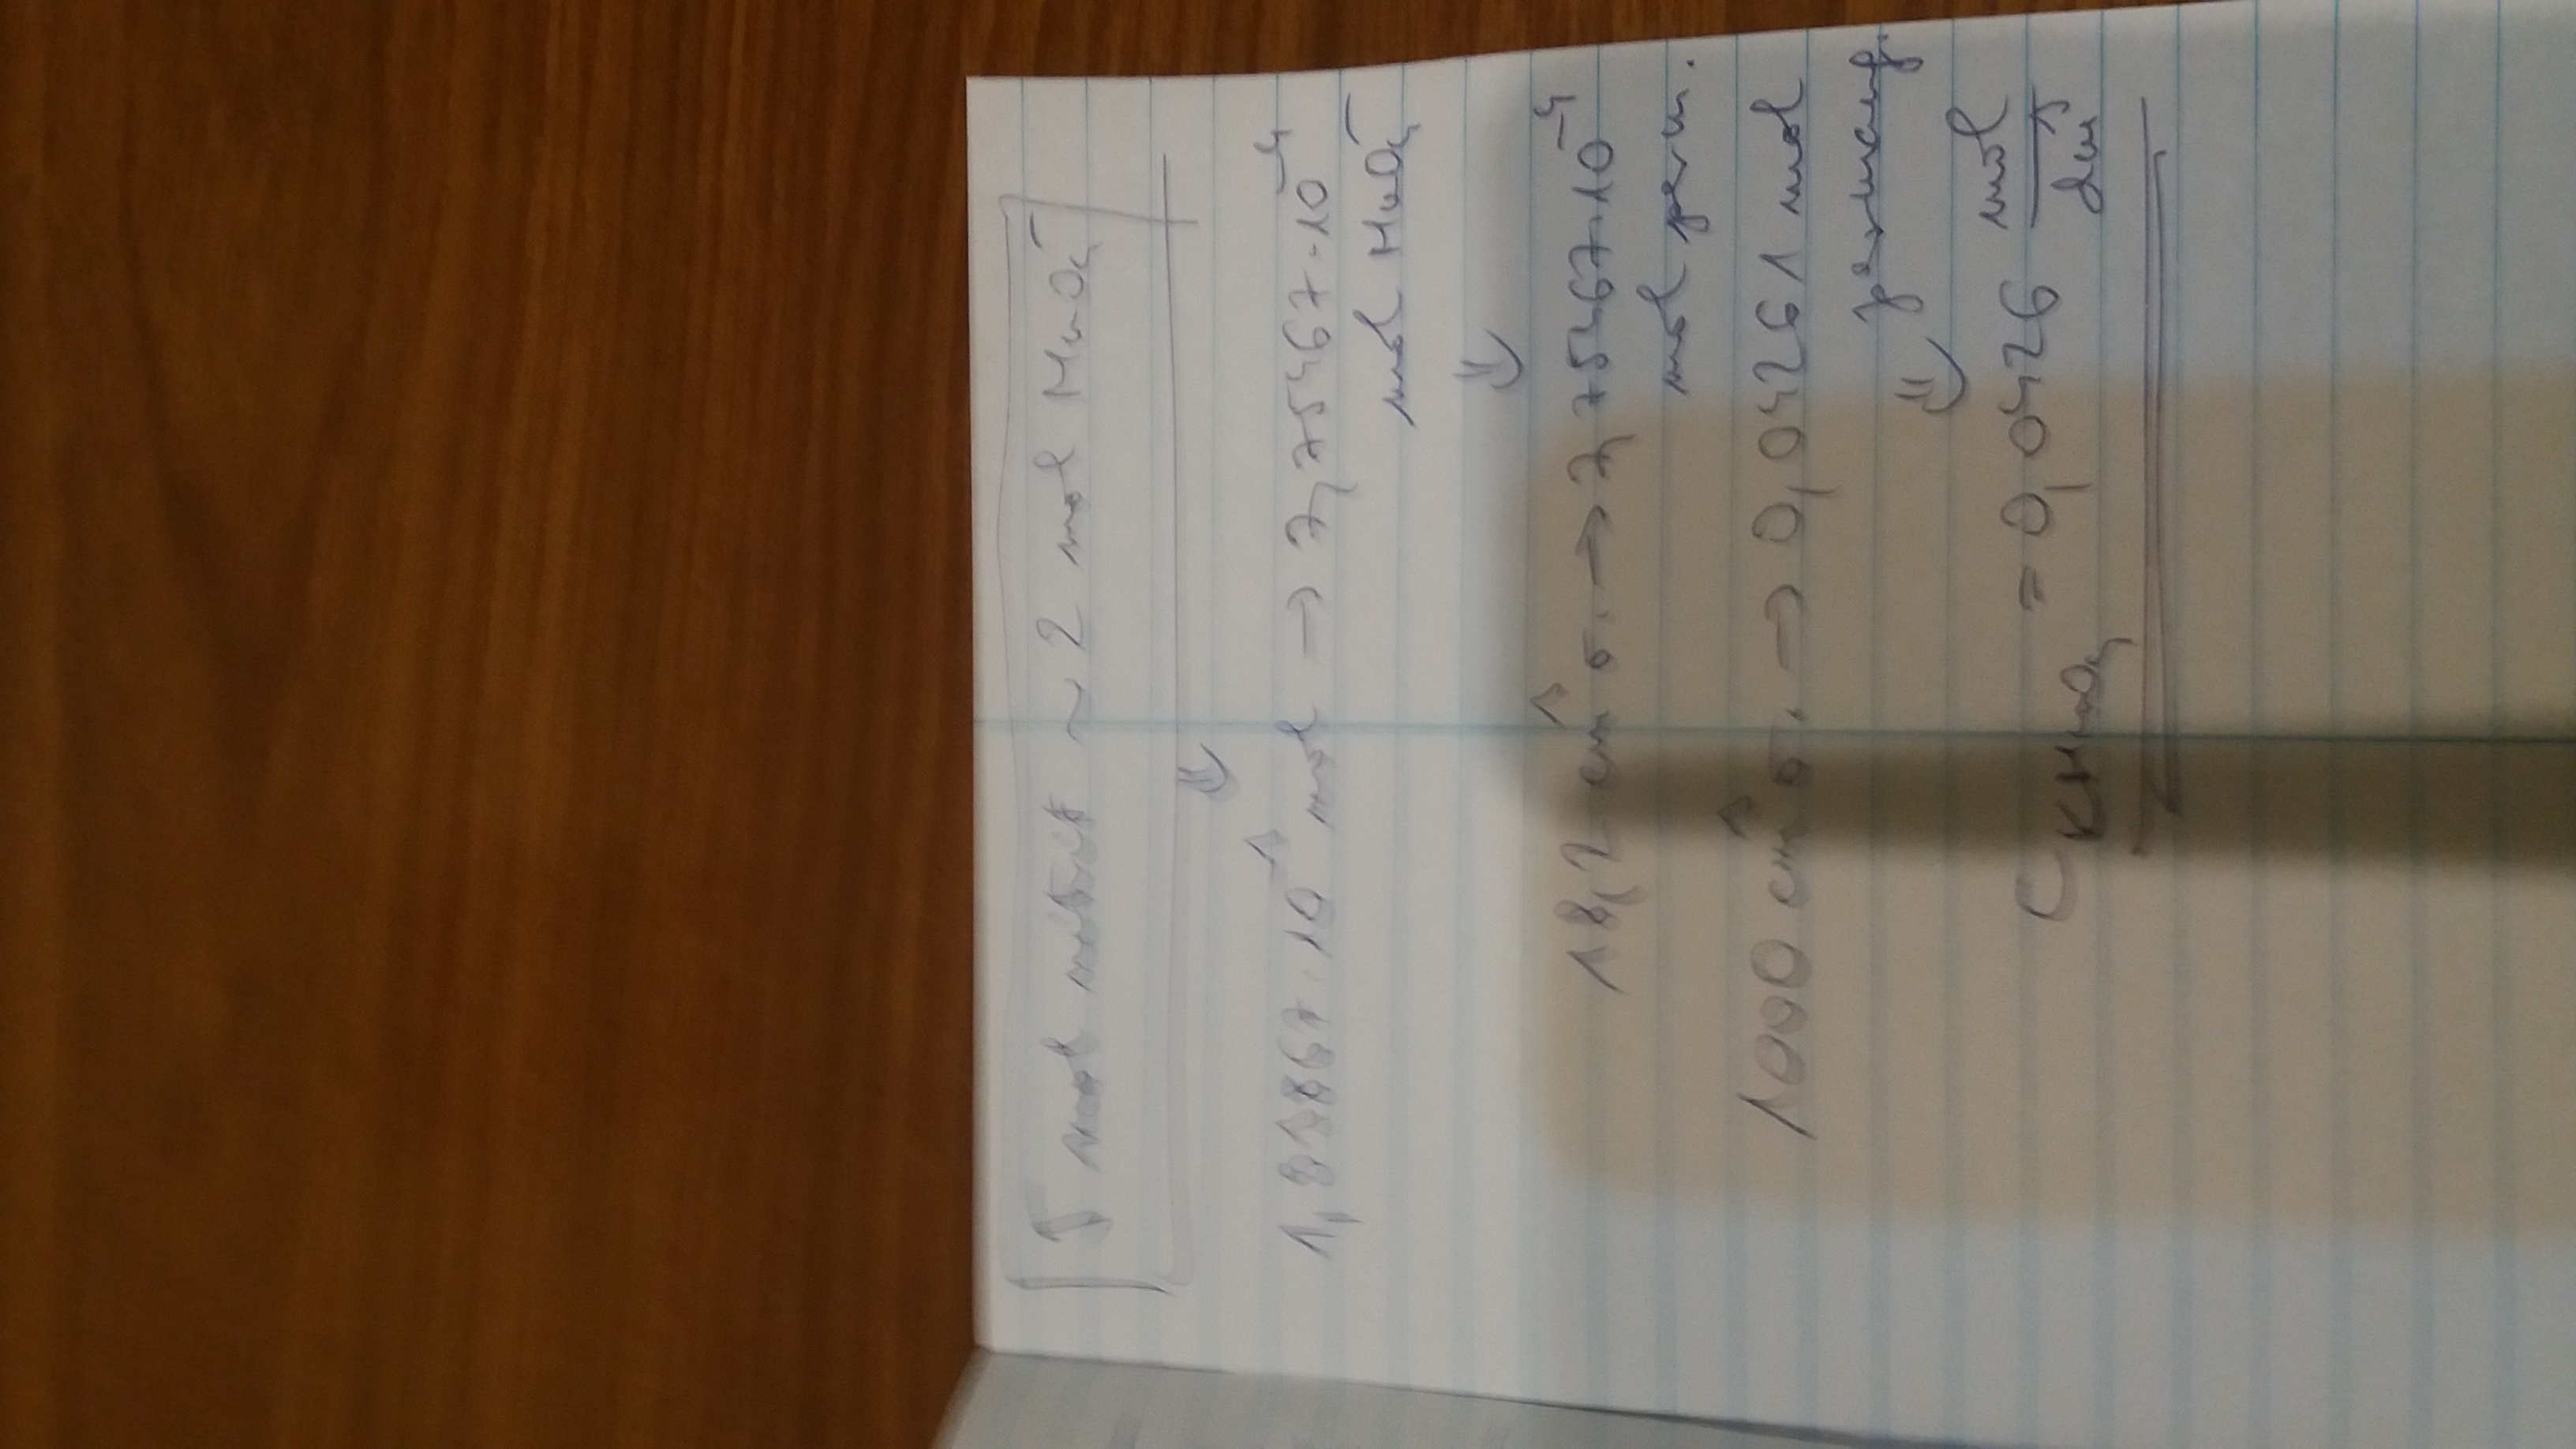 5 mol nitrit ~ 2 mol MnO₄⁻
⇓
1,93867·10⁻³ mol → 7,75467·10⁻⁴
mol MnO₄⁻
⇓
18,2 cm³ o. → 7,75467·10⁻⁴
mol perm.
1000 cm³ o. → 0,04261 mol
permang.
⇓
C KMnO₄ = 0,0426 mol/dm³